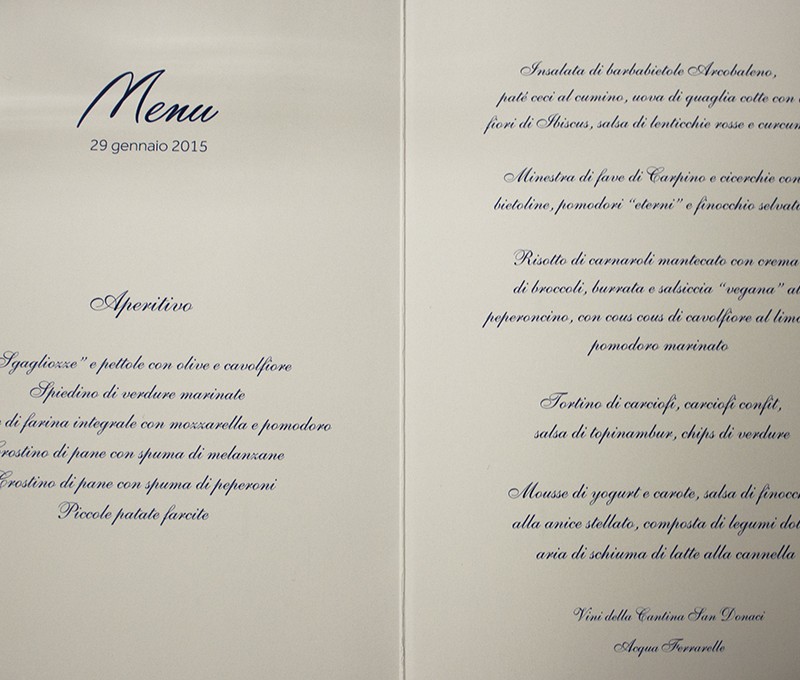 Menu
29 gennaio 2015
Aperitivo
Sgagliozze” e pettole con olive e cavolfiore
Spiedino di verdure marinate
di farina integrale con mozzarella e pomodoro
rostino di pane con spuma di melanzane
Crostino di pane con spuma di peperoni
Piccole patate farcite
Insalata di barbabietole Arcobaleno,
paté ceci al cumino, uova di quaglia cotte con
fiori di Ibiscus, salsa di lenticchie rosse e curcum
Minestra di fave di Carpino e cicerchie con
bietoline, pomodori “eterni” e finocchio selvati
Risotto di carnaroli mantecato con crema
di broccoli, burrata e salsiccia “vegana” al
peperoncino, con cous cous di cavolfiore al limo
pomodoro marinato
Tortino di carciofi, carciofi confit,
salsa di topinambur, chips di verdure
Mousse di yogurt e carote, salsa di finocc
alla anice stellato, composta di legumi dol
aria di schiuma di latte alla cannella
Vini della Cantina San Donaci
Acqua Ferrarelle